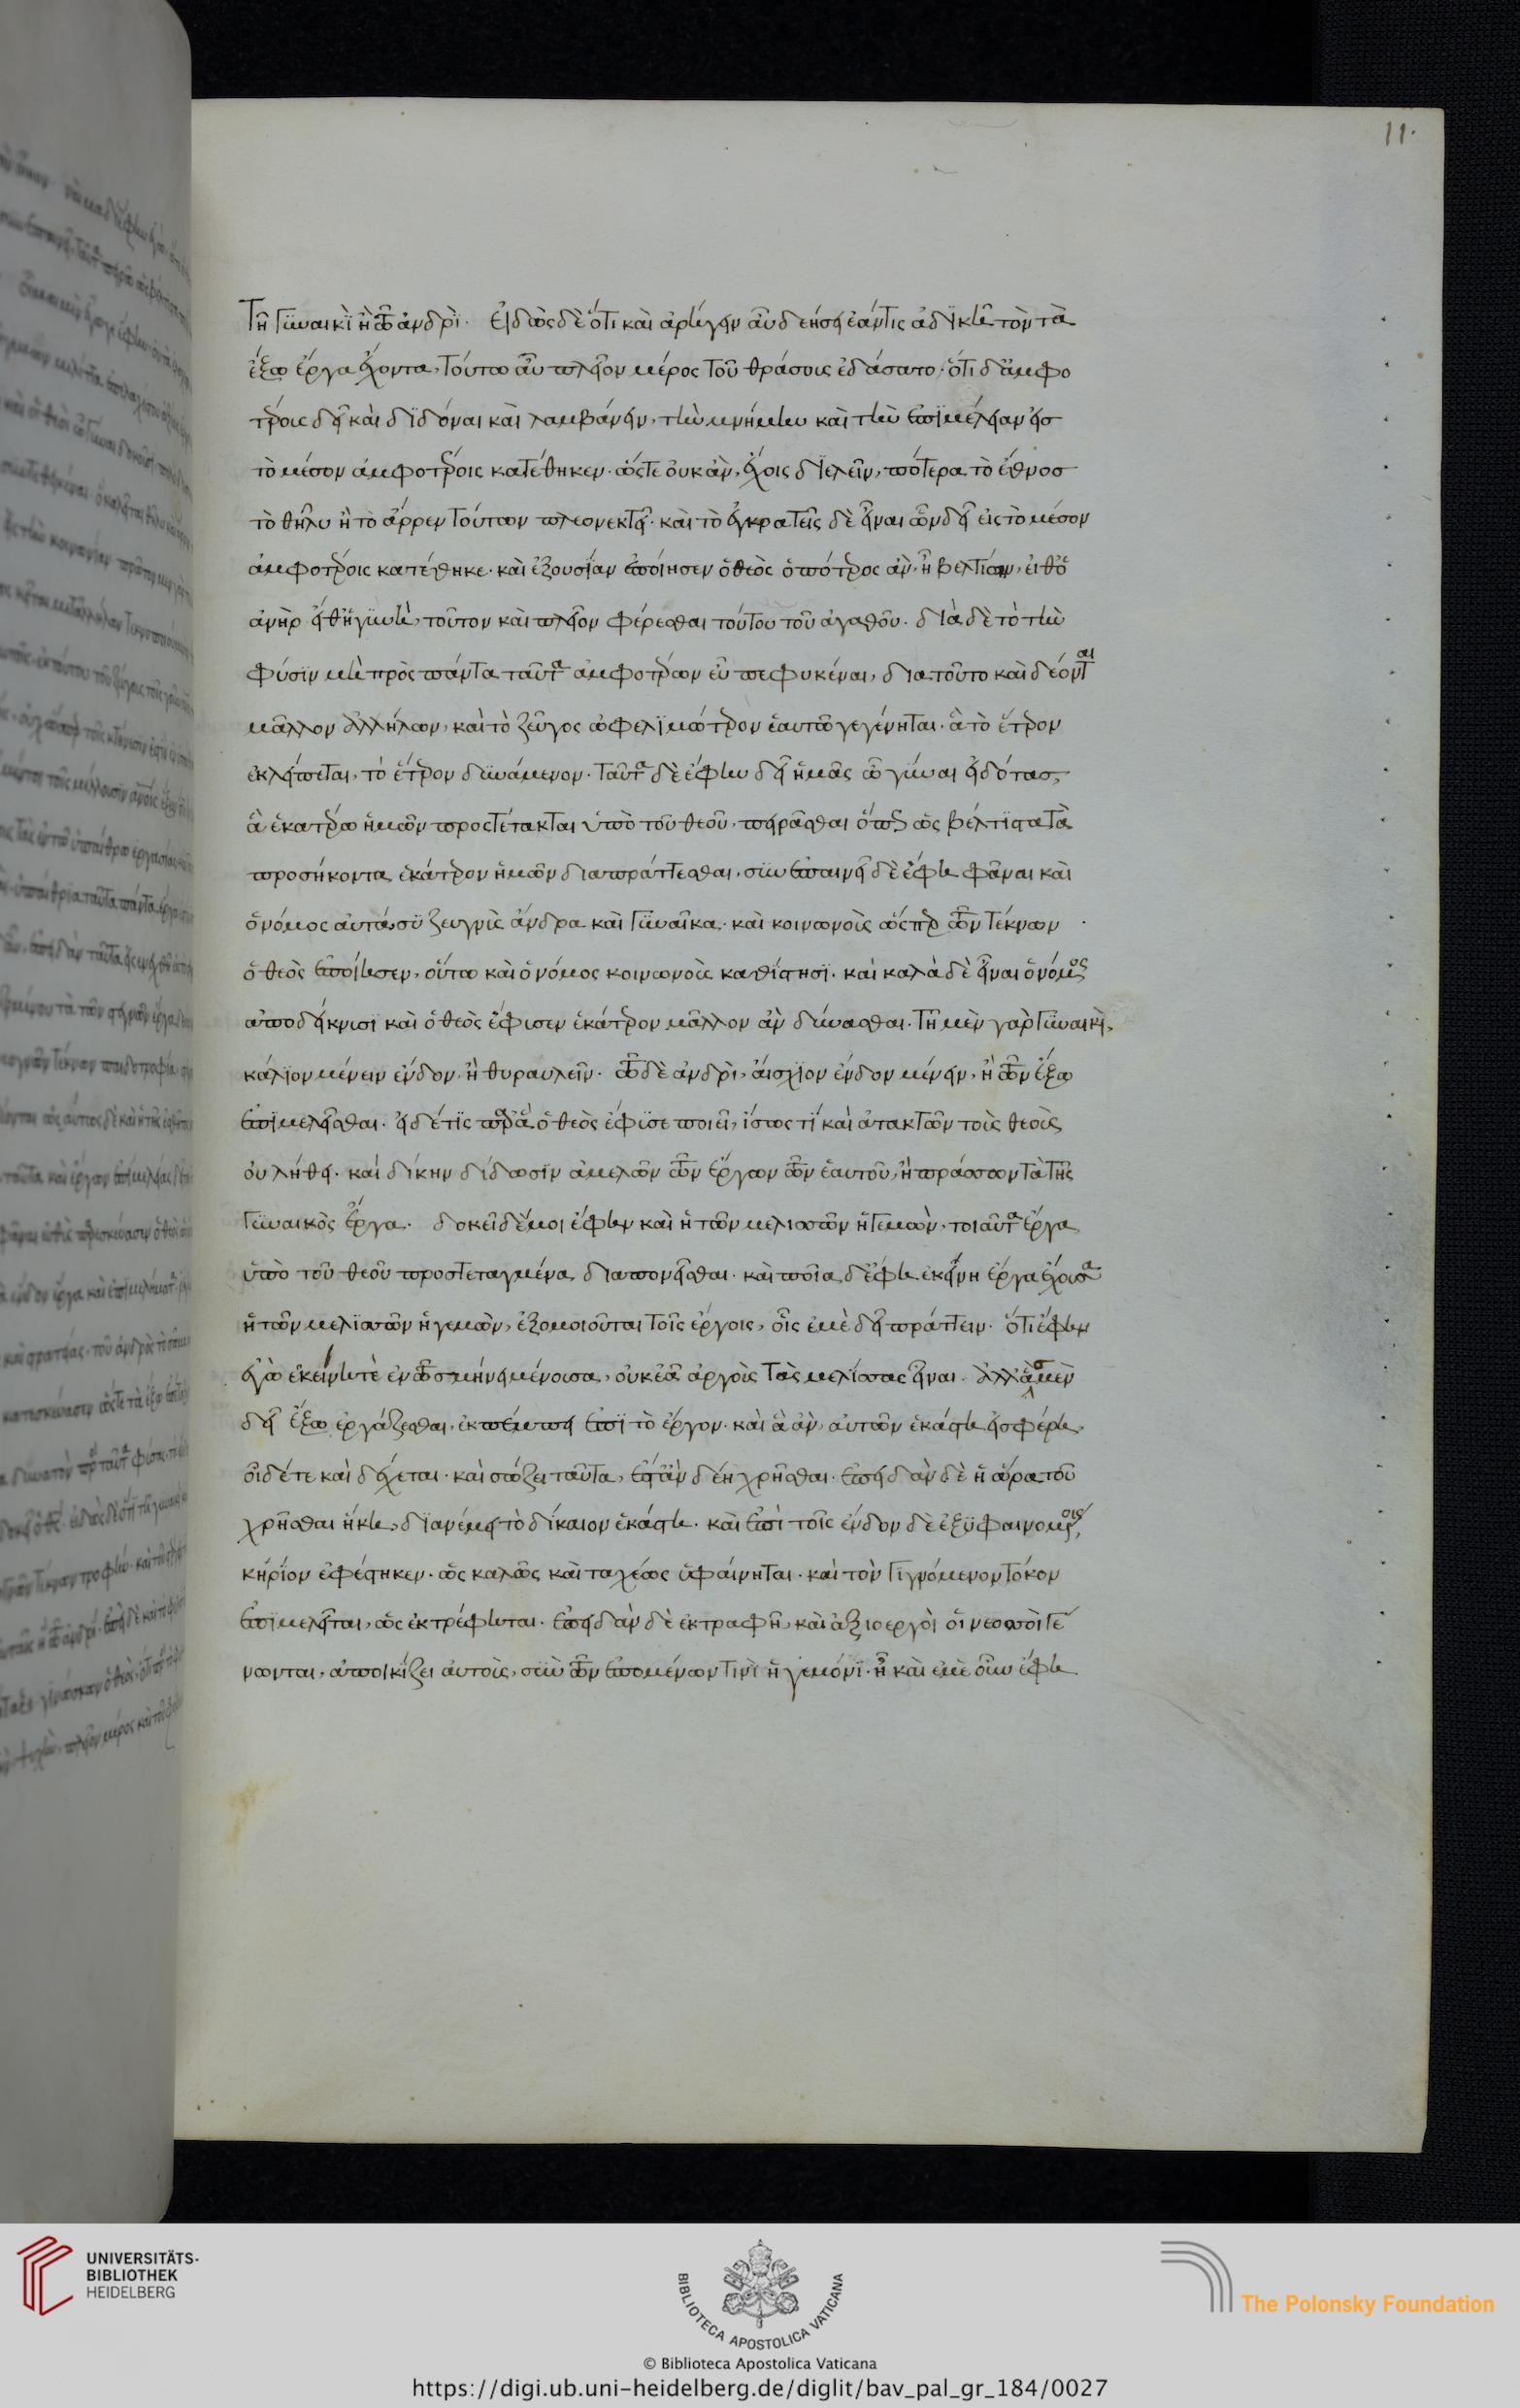 11.
Τῆ γϋναικὶ ἢ τῶ ἀνδρὶ. Εἰδὼς δὲ ὅτι καὶ ἀρήγειν αὖ δεήσει ἐάν τις ἀδϊκῆ τὸν τὰ
ἔξω ἔργα ἔχοντα, τούτω αὖ πλεῖον μέρος τοῦ θράσους ἐδάσατο, ὅτι δ' ἀμφο
τέροις δεῖ καὶ δϊδόναι καὶ λαμβάνειν, τὴν μνήμην καὶ τὴν ἐπϊμέλειαν εἰσ
τὸ μέσον ἀμφοτέροις κατέθηκεν. ὥστε οὐκ ἂν, ἔχοις διελεῖν, πότερα τὸ ἔθνοσ
τὸ θῆλυ ἢ τὸ ἄρρεν τούτων πλεονεκτεῖ. καὶ τὸ ἐγκρατεῖς δὲ εἶναι ὧν δεῖ εἰς τὸ μέσον
ἀμφοτέροις κατέθηκε. καὶ ἐξουσίαν ἐποίησεν ὁ θεὸς ὁπότερος ἂν, ἦ βελτίων, εἴθ' ὁ
ἀνὴρ εἴθ' ἡ γϋνὴ, τοῦτον καὶ πλεῖον φέρεσθαι τούτου τοῦ ἀγαθοῦ. διὰ δὲ τὸ τὴν
φύσϊν μὴ πρὸς πάντα ταῦτα ἀμφοτέρων εὖ πεφυκέναι, δια τοῦτο καὶ δέονται
μᾶλλον ἀλλήλων, καὶ τὸ ζεῦγος ὠφελϊμώτερον ἑαυτῶ γεγένηται. ἃ τὸ ἕτερον
ἐκλείπεται, τὸ ἕτερον δϋνάμενον. ταῦτα δὲ ἔφην δεῖ ἡμᾶς ὦ γύναι εἰδότασ,
ἃ ἑκατέρω ἡμῶν προστέτακται ὑπὸ τοῦ θεοῦ, πειρᾶσθαι ὅπως ὡς βέλτϊστα τὰ
προσήκοντα ἑκάτερον ἡμῶν διαπράττεσθαι. συν επαινεῖ δὲ ἔφη φᾶναι καὶ
ὁ νόμος αὐτὰ συζευγνὺς ἄνδρα καὶ γϋναῖκα. καὶ κοινωνοὺς ὥσπερ τῶν τέκνων
ὁ θεὸς ἐποίησεν, οὕτω καὶ ὁ νόμος κοινωνοὺς καθίστησϊ. καὶ καλὰ δὲ εἶναι ὁ νόμος
ἀποδείκνυσϊ καὶ ὁ θεὸς ἔφυσεν ἑκάτερον μᾶλλον ἂν δύνασθαι. Τῆ μὲν γὰρ γϋναικὶ,
κάλϊον μένειν ἔνδον ἢ θυραυλεῖν. τῶ δὲ ἀνδρὶ, αἴσχϊον ἔνδον μένειν, ἢ τῶν ἔξω
ἐπϊμελεῖσθαι. εἰ δέ τϊς παρ' ἃ ὁ θεὸς ἔφϋσε ποιεῖ, ἴσως τί καὶ ἀτακτῶν τοὺς θεοὺς
οὐ λήθει. καὶ δίκην δίδωσϊν ἀμελῶν τῶν ἔργων τῶν ἑαυτοῦ, ἢ πράσσων τὰ τῆς
γϋναικὸς ἔργα. δοκεῖ δέ μοι ἔφην καὶ ἡ τῶν μελισσῶν ἡγεμὼν, τοιαῦτα ἔργα
ὑπὸ τοῦ θεοῦ προστεταγμένα διαπονεῖσθαι. καὶ ποῖα δ' ἔφη ἐκείνη ἔργα ἔχουσα
ἡ τῶν μελϊσσῶν ἡγεμὼν, ἐξομοιοῦται τοῖς ἔργοις, οἷς ἐμὲ δεῖ πράττειν. ὅτι ἔφην
ἐγὼ ἐκείνη τὲ ἐν τῶ σμήνει μένουσα, οὐκ ἐᾶ ἀργοὺς τὰς μελίσσας εἶναι. ἀλλ' ἃσ μὲν
δεῖ ἔξω ἐργάζεσθαι, ἐκπέμπει ἐπϊ τὸ ἔργον. καὶ ἃ ἂν, αὐτῶν ἑκάστη εἰσφέρη
οἶδέ τε καὶ δέχεται. καὶ σώζει ταῦτα, ἔστ' ἂν δέη χρῆσθαι. ἐπειδὰν δὲ ἡ ὥρα τοῦ
χρῆσθαι ἥκη, δϊανέμει τὸ δίκαιον ἑκάστη. καὶ ἐπὶ τοῖς ἔνδον δὲ ἐξϋφαινομένοις
κηρίον ἐφέστηκεν. ὡς καλῶς καὶ ταχέως ὑφαίνηται. καὶ τὸν γιγνόμενον τόκον
ἐπϊμελεῖται, ὡς ἐκτρέφηται. ἐπειδὰν δὲ ἐκτραφῆ, καὶ ἀξιοεργοὶ οἱ νεοσσοὶ γέ
νωνται, ἀποικίζει αὐτοὺς, σϋν τῶν ἑπομένων τινὶ ἡγεμόνϊ. ἦ καὶ ἐμὲ οὖν ἔφη
UNIVERSITÄTS-
BIBLIOTHEK
HEIDELBERG
BIBLIOTECA APOSTOLICA VATICANA
The Polonsky Foundation
© Biblioteca Apostolica Vaticana
https://digi.ub.uni-heidelberg.de/diglit/bav_pal_gr_184/0027